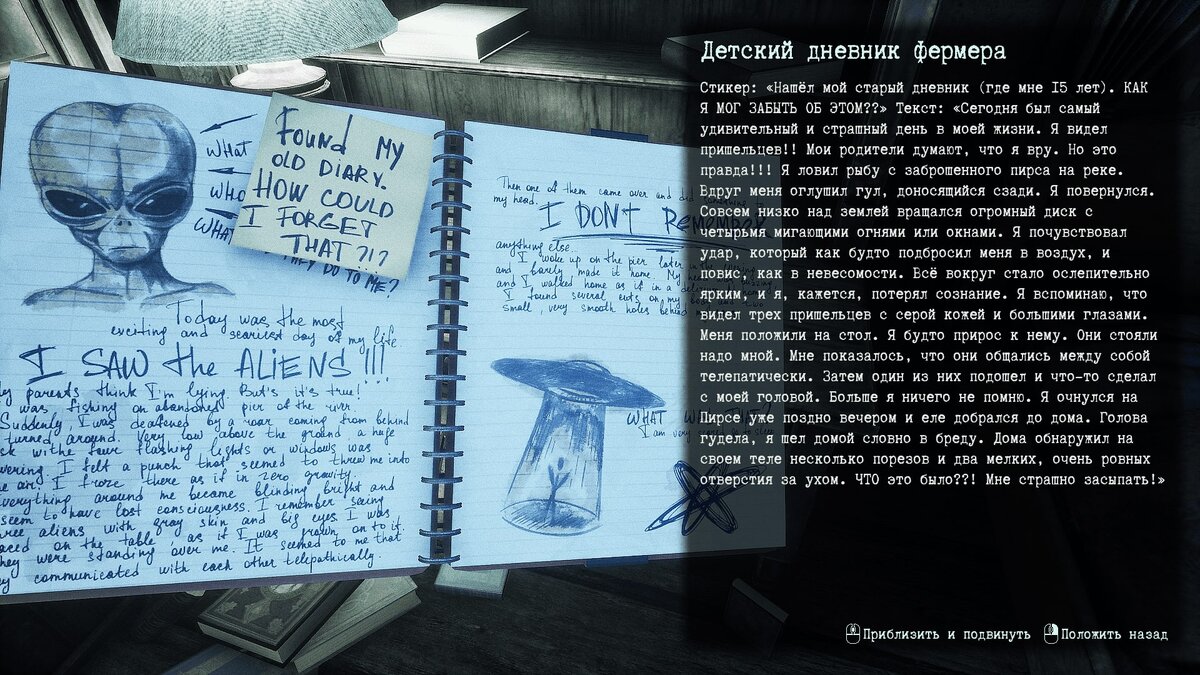 WHAT
WHO
WHAT
THEY DO TO ME?
Found MY
OLD DIARY.
HOW COULD
I FORGET
THAT?!?
Today was the most
exciting and scariest day of my life
I SAW the ALIENS!!!
parents think I'm lying. But's it's true!
was fishing on abandoned pier of the river
Suddenly, I was deafened by a roar coming from behind
turned around. Very low above the ground, a huge
withe four flashing lights or windows was
I felt a punch that seemed to threw me into
air. I froze there as if in zero gravity
everything around me became blinding bright and
seem to have lost consciousness. I remember seeing
aliens with gray skin and big eyes. I was
on the table, as if I was grown on to it.
they were standing over me. It seemed to me that
communicated with each other telepathically.
Then one of them came over and did
my head.
I DON'T Remember
anything else.
I woke up on the pier later in
and barely made it home. My
and I walked home as if in a
I found several cuts on my body
small, very smooth holes behind
WHAT
I am very
Детский дневник фермера
Стикер: «Нашёл мой старый дневник (где мне 15 лет). КАК
Я МОГ ЗАБЫТЬ ОБ ЭТОМ??» Текст: «Сегодня был самый
удивительный и страшный день в моей жизни. Я видел
пришельцев!! Мои родители думают, что я вру. Но это
правда!!! Я ловил рыбу с заброшенного пирса на реке.
Вдруг меня оглушил гул, доносящийся сзади. Я повернулся.
Совсем низко над землей вращался огромный диск с
четырьмя мигающими огнями или окнами. Я почувствовал
удар, который как будто подбросил меня в воздух, и
повис, как в невесомости. Всё вокруг стало ослепительно
ярким, и я, кажется, потерял сознание. Я вспоминаю, что
видел трех пришельцев с серой кожей и большими глазами.
Меня положили на стол. Я будто прирос к нему. Они стояли
надо мной. Мне показалось, что они общались между собой
телепатически. Затем один из них подошел и что-то сделал
с моей головой. Больше я ничего не помню. Я очнулся на
Пирсе уже поздно вечером и еле добрался до дома. Голова
гудела, я шел домой словно в бреду. Дома обнаружил на
своем теле несколько порезов и два мелких, очень ровных
отверстия за ухом. ЧТО это было??! Мне страшно засыпать!»
Приблизить и подвинуть
Положить назад